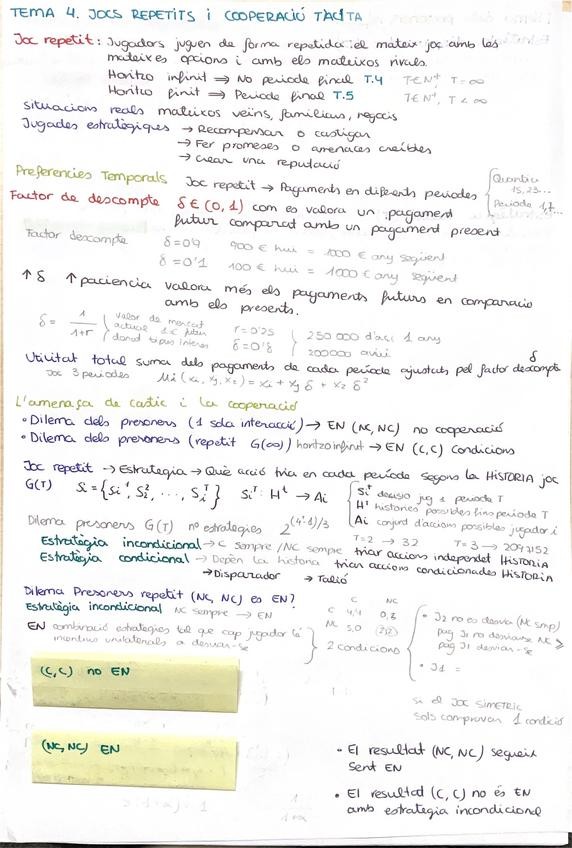 TEMA 4. JOCS REPETITS i COOPERACIÓ TÀCITA
Joc repetit: Jugadors juguen de forma repetida el mateix joc amb les
mateixes opcions i amb els mateixos rivals.
Horitzó infinit ⇒ No periode final T.4 T∈N⁺, T = ∞
Horitzó finit ⇒ Periode final T.5 T∈N⁺, T < ∞
Situacions reals mateixos veïns, famílies, negocis
Jugades estratègiques → Recompensar o castigar
→ Fer promeses o amenaces creïbles
→ Crear una reputació
Preferencies Temporals Joc repetit → Pagaments en diferents periodes
Quantia
15, 23...
Periode 1, 7, ...
Factor de descompte δ ∈ (0, 1) com es valora un pagament
futur comparat amb un pagament present
Factor descompte δ = 0'9 900 € hui = 1000 € any següent
δ = 0'1 100 € hui = 1000 € any següent
↑ δ ↑ paciencia valora més els pagaments futurs en comparació
amb els presents.
δ = 1/(1+r) valor de mercat
actual 1€ futur
donat tipus interés
r = 0'25
δ = 0'8
250 000 d'ací 1 any
200000 avui
Utilitat total suma dels pagaments de cada periode ajustats pel factor descompte δ
Joc 3 periodes Ui (x₀, xy, x₂) = x₀ + xy δ + x₂ δ²
L'amenaça de castic i la cooperació
• Dilema dels presoners (1 sola interacció) → EN (NC, NC) no cooperació
• Dilema dels presoners (repetit G(∞)) horitzó infinit → EN (C, C) Condicions
Joc repetit → Estrategia → Què acció tria en cada període segons la HISTÒRIA joc
G(T) Si = {Si¹, S²i, ..., Siᵀ} Siᵀ: Hᵗ → Ai
Siᵀ decisió jug i periode T
Hᵗ histories possibles fins periode T
Ai conjunt d'accions possibles jugador i
Dilema presoners G(T) nº estrategies 2^(4ᵀ-1)/3
T=2 → 32 T=3 → 2097152
Estratègia incondicional → C sempre / NC sempre triar accions independet HISTORIA
Estratègia condicional → Depén la història triar accions condicionades HISTORIA
→ Disparador → Talió
Dilema Presoners repetit (NC, NC) és EN?
Estratègia incondicional NC sempre → EN
C NC
C 4,4 0,5
NC 5,0 2,2
EN combinació estratègies tal que cap jugador té
incentius unilaterals a desviar-se
2 condicions
• J2 no es desvia (NC smp)
pag J1 no desviarse NC ≥
pag J1 desviar-se
• J1 =
si el JOC SIMÈTRIC
sols comprovar 1 condició
(C, C) no EN
(NC, NC) EN
• El resultat (NC, NC) segueix
sent EN
• El resultat (C, C) no és EN
amb estratègia incondicional